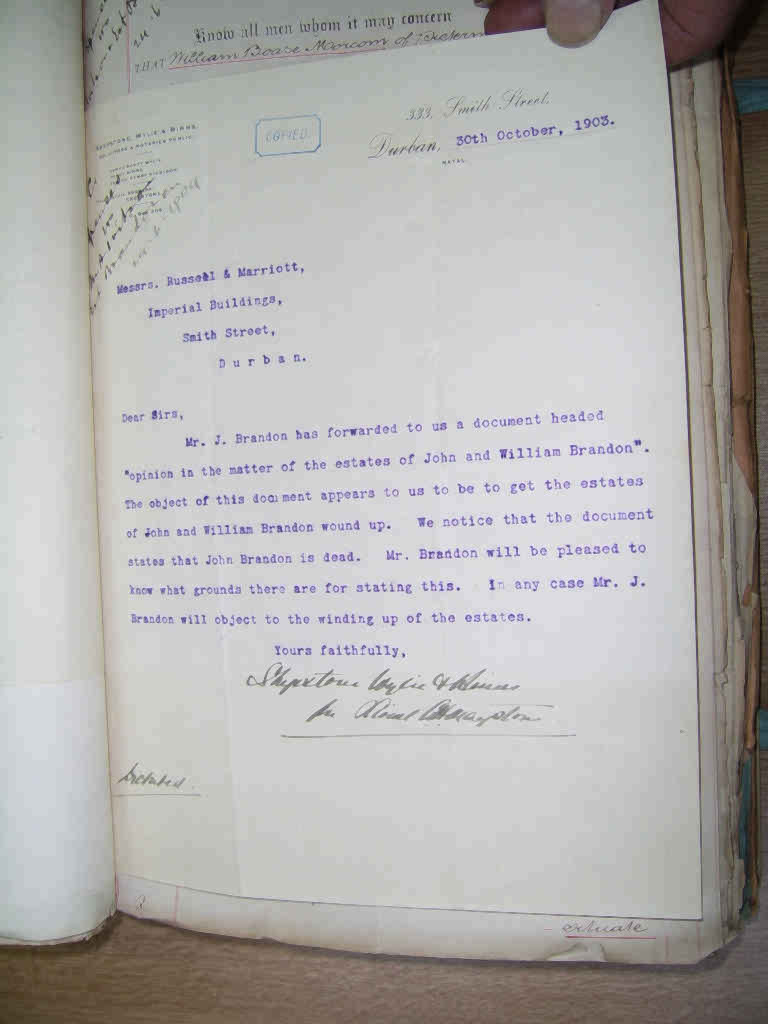 Know all men whom it may concern
THAT William Boase Marcom of
SHEPSTONE, WYLIE & BINNS,
SOLICITORS & NOTARIES PUBLIC.
COPIED.
333, Smith Street,
Durban, 30th October, 1903.
NATAL.
Messrs. Russell & Marriott,
Imperial Buildings,
Smith Street,
Durban.
Dear Sirs,
Mr. J. Brandon has forwarded to us a document headed
"opinion in the matter of the estates of John and William Brandon".
The object of this document appears to us to be to get the estates
of John and William Brandon wound up. We notice that the document
states that John Brandon is dead. Mr. Brandon will be pleased to
know what grounds there are for stating this. In any case Mr. J.
Brandon will object to the winding up of the estates.
Yours faithfully,
Shepstone Wylie & Binns